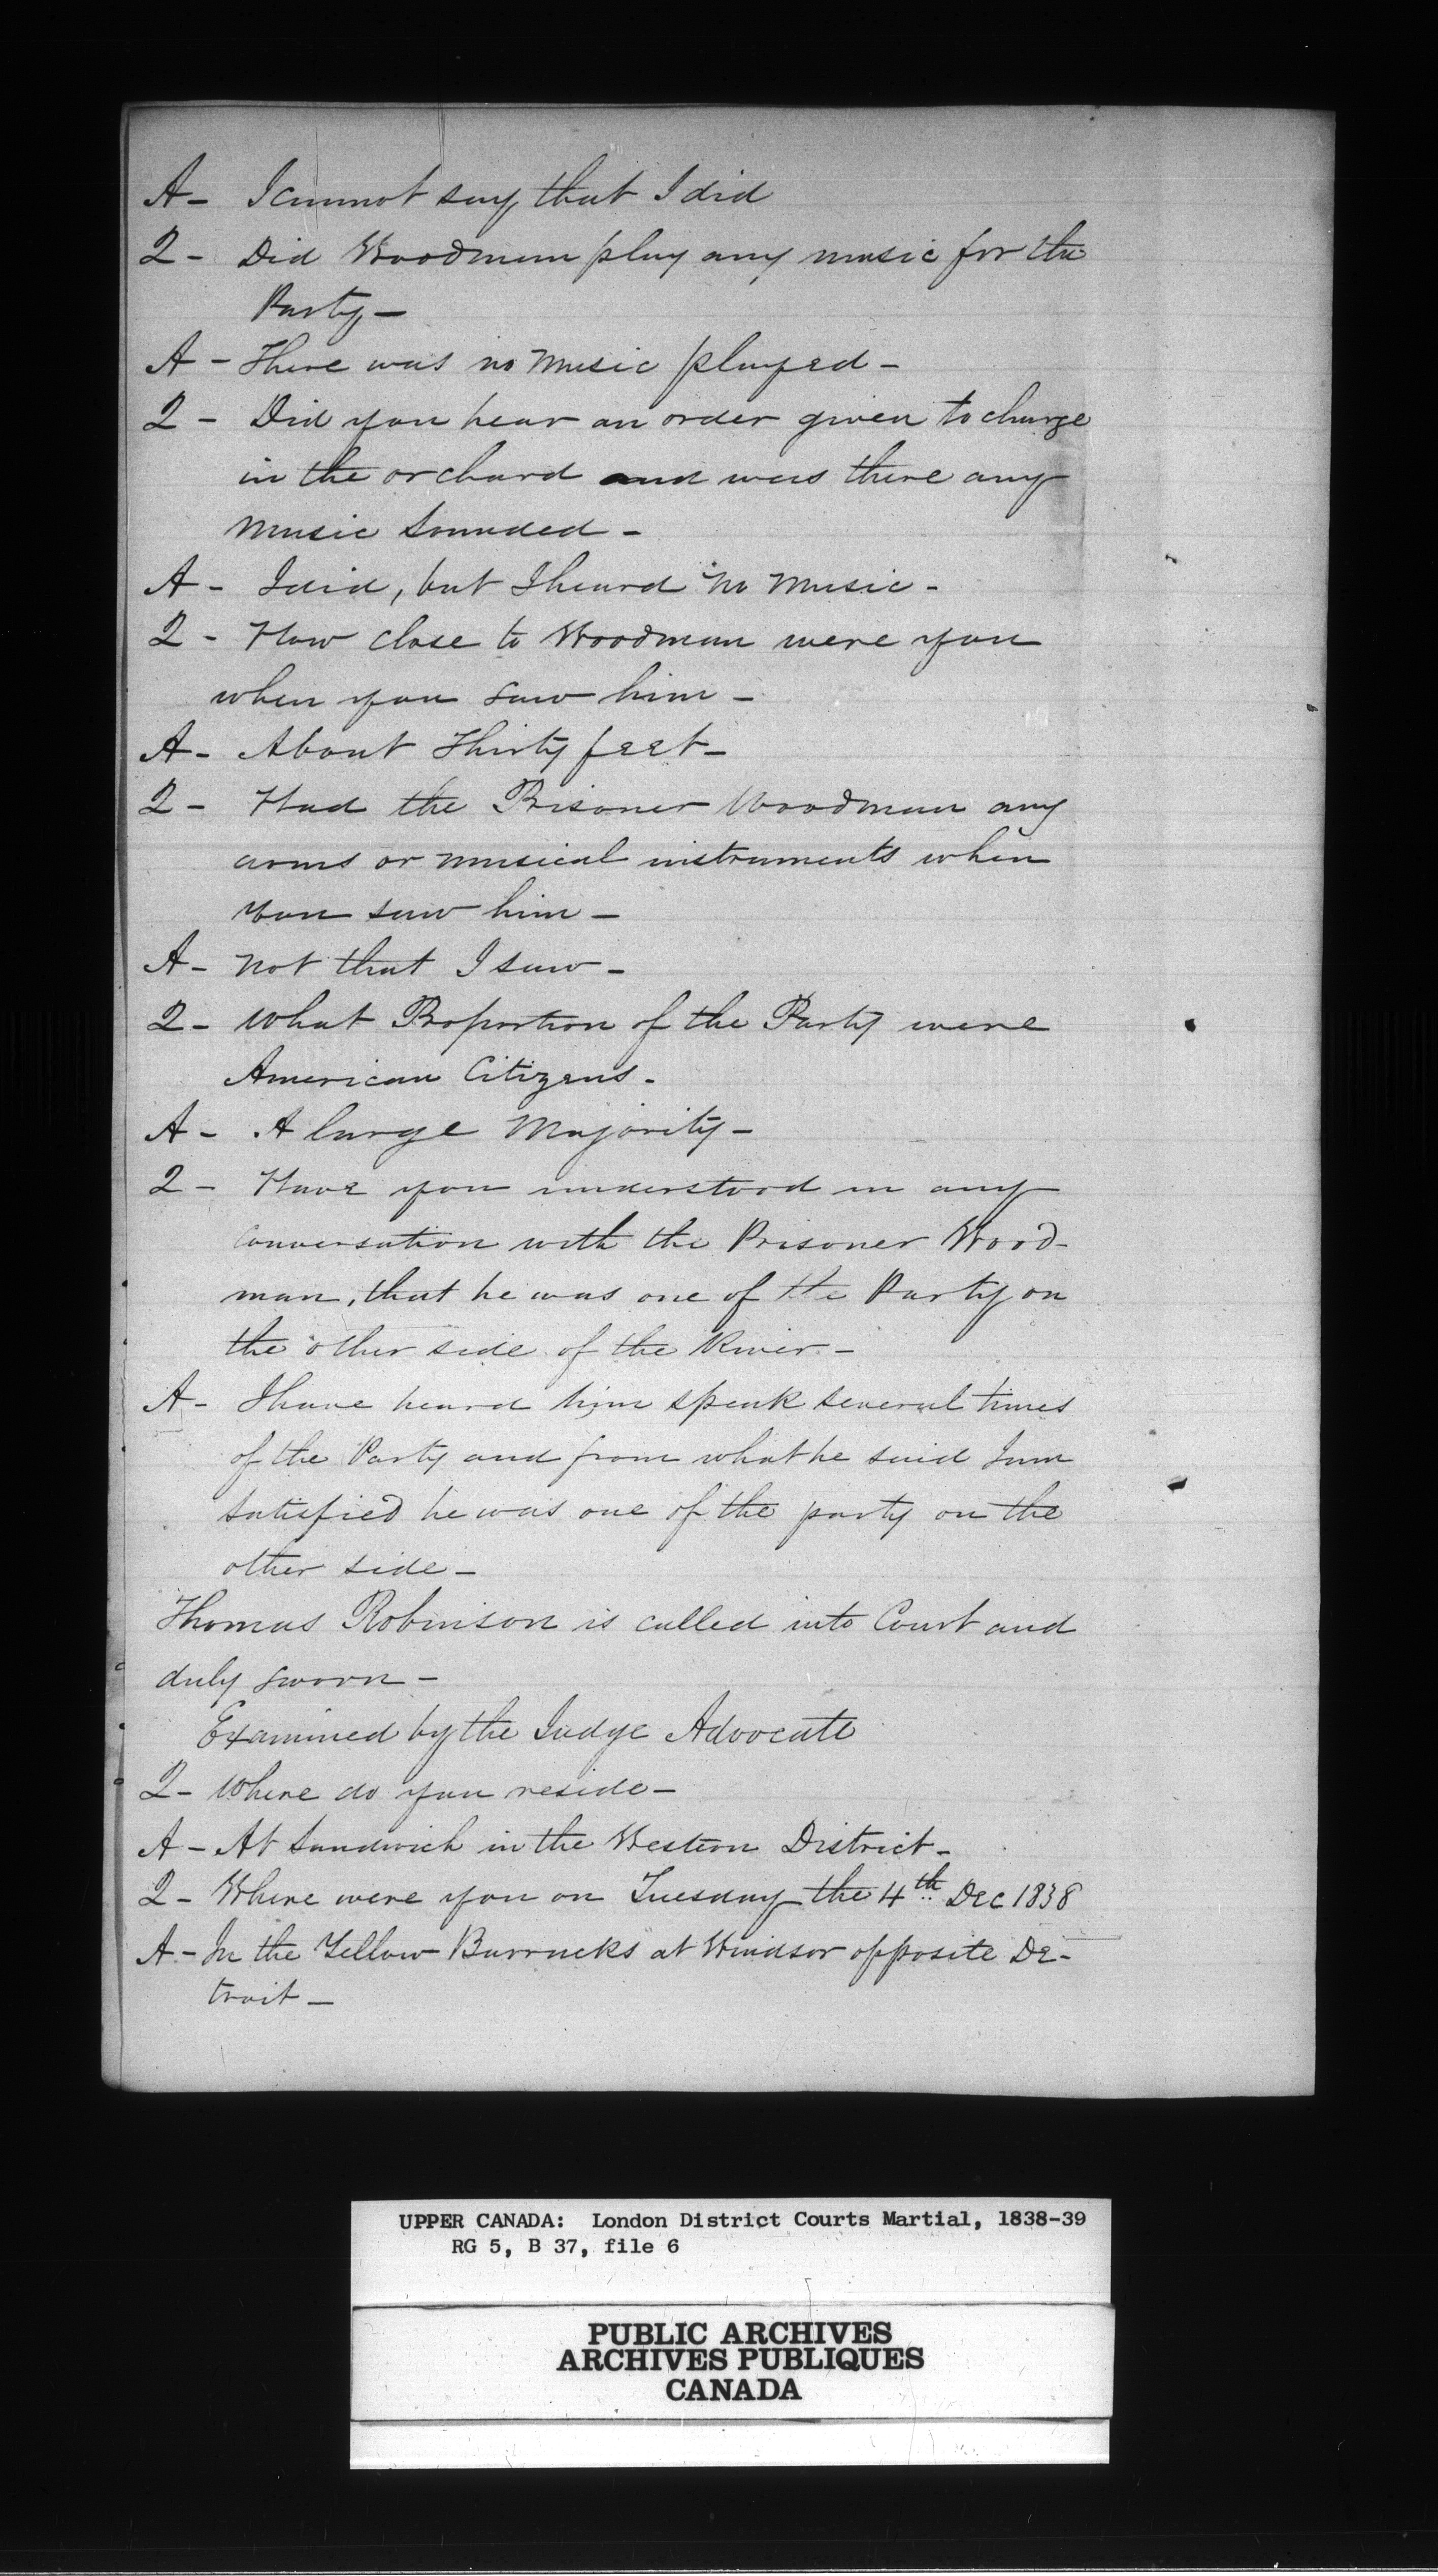 A - I cannot say that I did
Q - Did Woodman play any music for the
Party -
A - There was no music played -
Q - Did you hear an order given to charge
in the orchard and was there any
music sounded -
A - I did, but I heard no music -
Q - How close to Woodman were you
when you saw him -
A - About Thirty feet -
Q - Had the Prisoner Woodman any
arms or musical instruments when
you saw him -
A - not that I saw -
Q - What Proportion of the Party were
American Citizens -
A - A large Majority -
Q - Have you understood in any
conversation with the Prisoner Wood-
man, that he was one of the Party on
the other side of the River -
A - I have heard him speak several times
of the Party and from what he said I am
satisfied he was one of the party on the
other side -
Thomas Robinson is called into Court and
duly sworn -
Examined by the Judge Advocate
Q - Where do you reside -
A - At Sandwich in the Western District -
Q - Where were you on Tuesday the 4th Dec 1838
A - In the Yellow Barracks at Windsor opposite De-
troit -
UPPER CANADA: London District Courts Martial, 1838-39
RG 5, B 37, file 6
PUBLIC ARCHIVES
ARCHIVES PUBLIQUES
CANADA